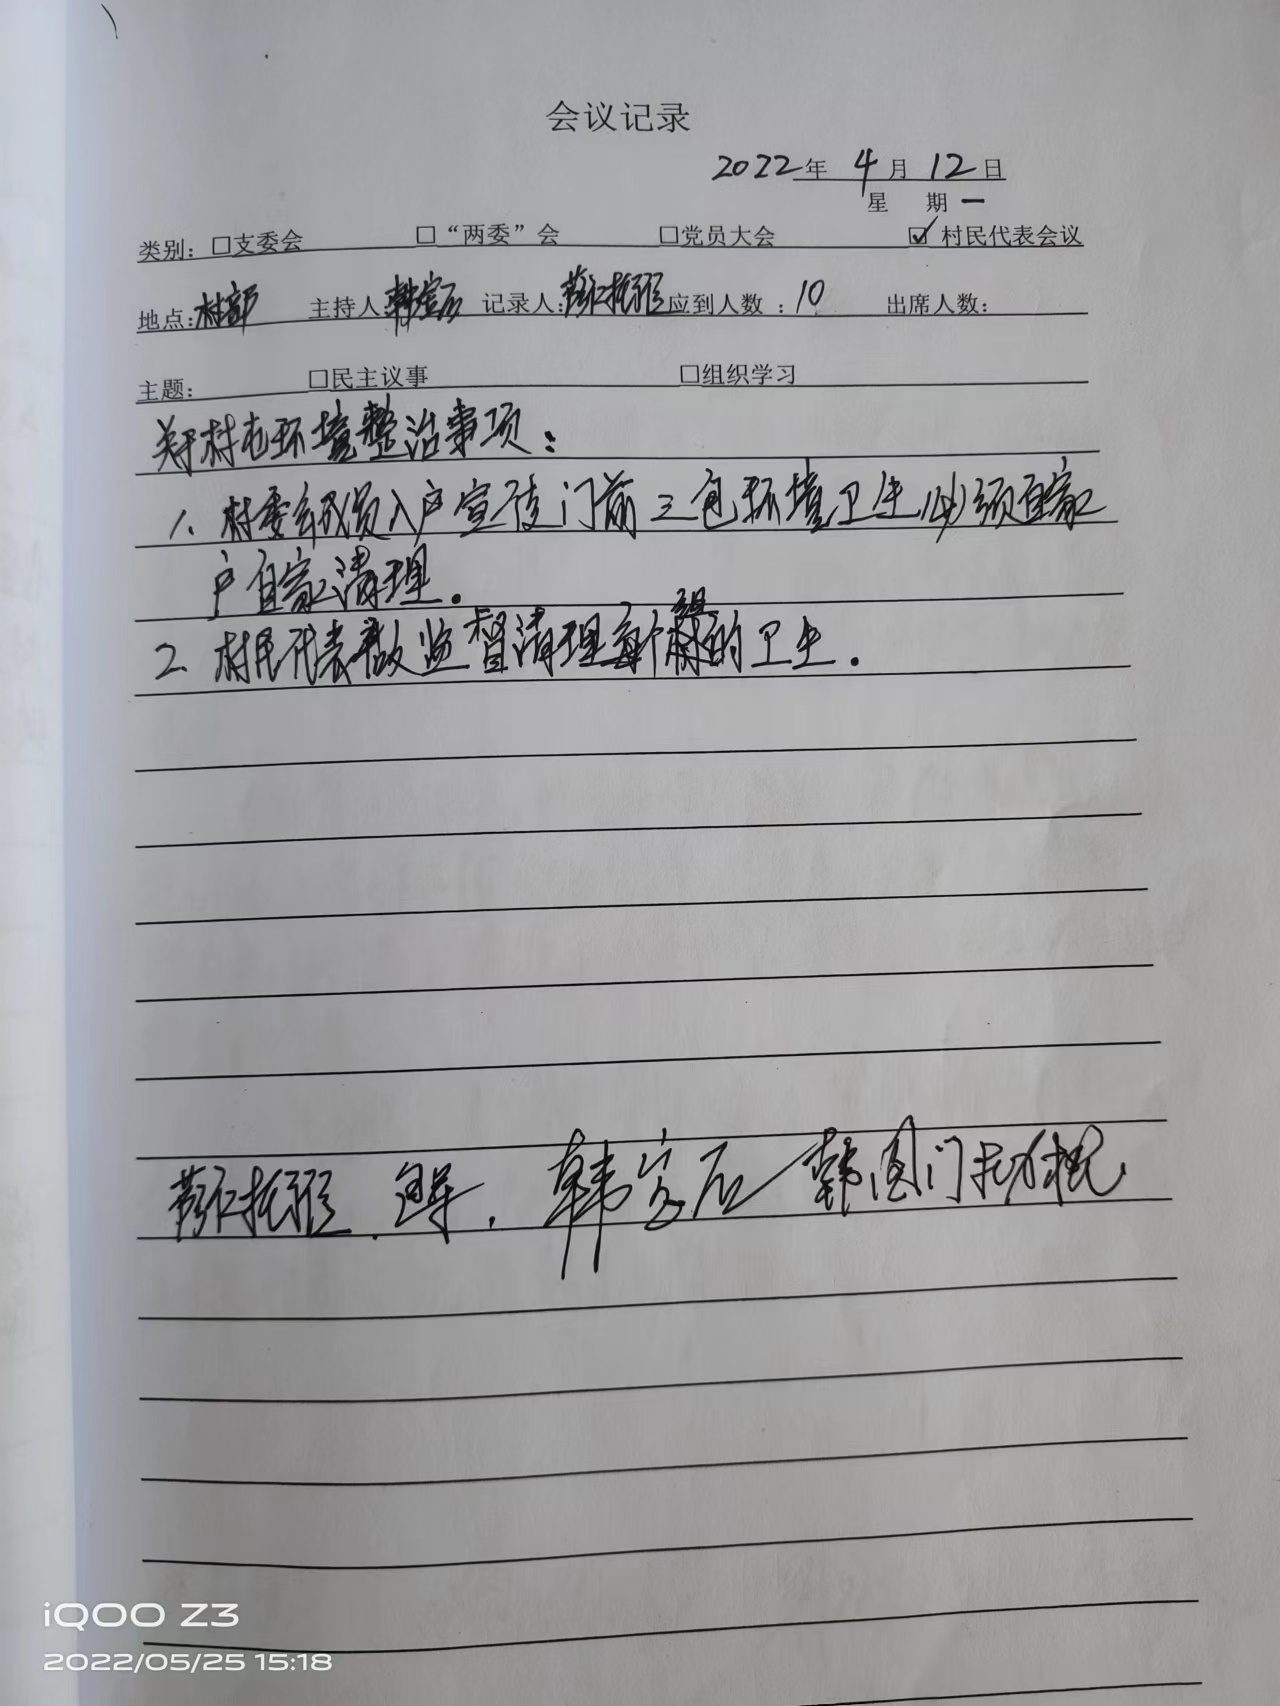 会议记录
2022年 4月 12日
星 期 一
类别：□支委会 □“两委”会 □党员大会 ☑村民代表会议
地点:村部 主持人 记录人: 应到人数 :10 出席人数:
主题: □民主议事 □组织学习
关于村屯环境整治事项：
1. 村委会成员入户宣传门前三包环境卫生必须自家
户自家清理.
2. 村民代表 监督清理每个组的卫生.
iQOO Z3
2022/05/25 15:18